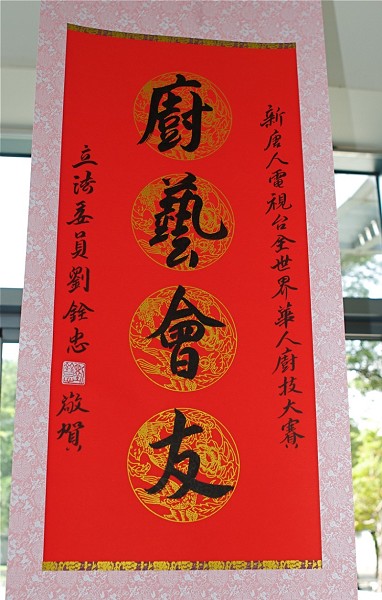 新唐人電視台全世界華人廚技大賽
廚藝會友
立法委員劉銓忠
敬賀